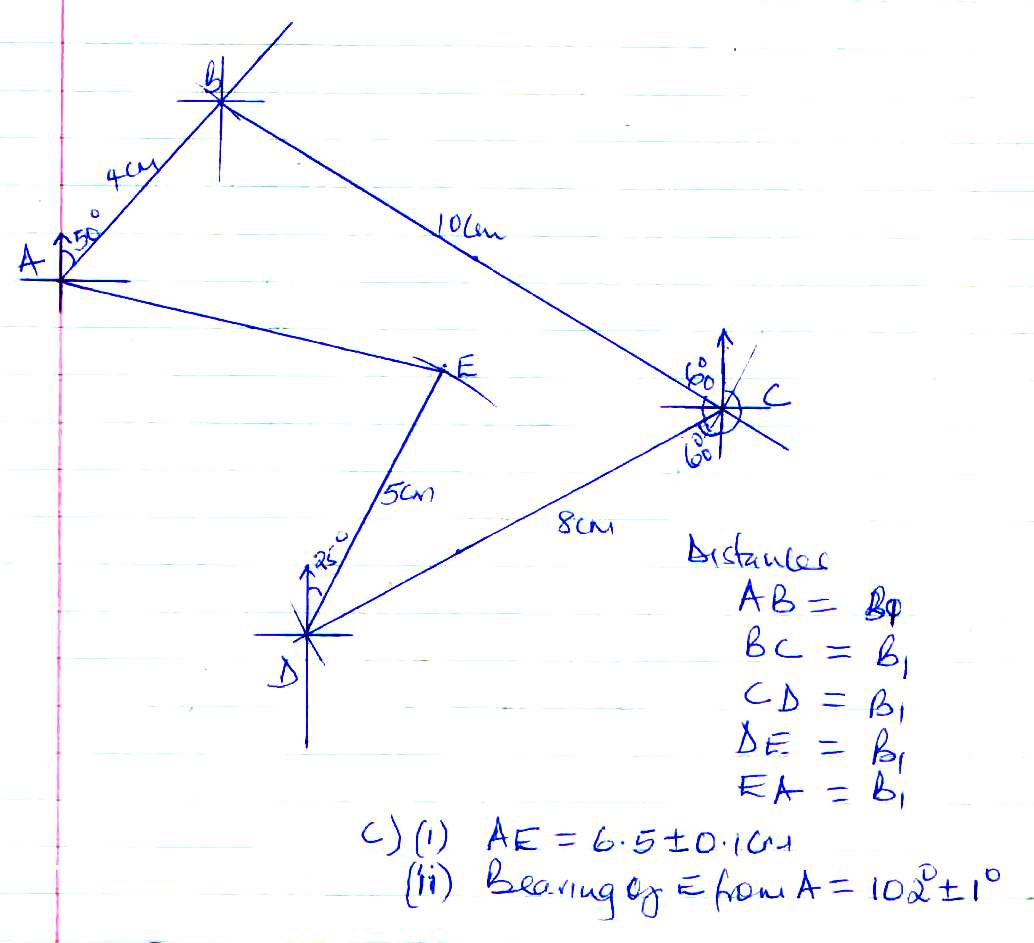 B
4cm
50°
A
10cm
E
60°
C
60°
5cm
8cm
D
Distances
AB = B1
BC = B1
CD = B1
DE = B1
EA = B1
C) (i) AE = 6.5 ± 0.1cm
(ii) Bearing of E from A = 102° ± 1°